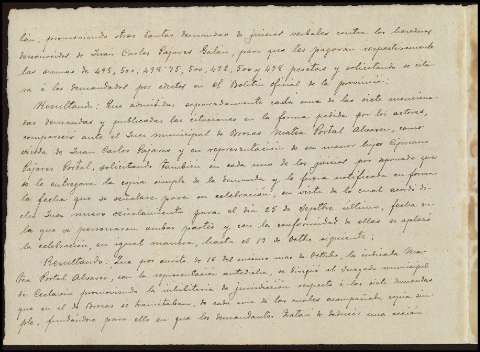 ción, promoviendo otras tantas demandas de juicios verbales contra los herederos
desconocidos de Juan Carlos Pajares Galán, para que les pagaran respectivamente
las sumas de 495, 500, 498'75, 500, 492, 500 y 498 pesetas y solicitando se cita
ra á los demandados por edictos en el Boletín oficial de la provincia:
Resultando: Que admitidas separadamente cada una de las siete menciona
das demandas y publicadas las citaciones en la forma pedida por los actores,
compareció ante el Juez municipal de Brozas Matea Portal Alvarez, como
viuda de Juan Carlos Pajares y en representación de su menor hijo Cipriano
Pajares Portal, solicitando también en cada uno de los juicios por apremio que
se le entregara la copia simple de la demanda y le fuera notificada en forma
la fecha que se señalare para su celebración, en vista de lo cual acordó di
cho Juez nuevo señalamiento para el día 25 de Septbre último, fecha en
la que se personaron ambas partes y con la conformidad de ellas se aplazó
la celebración, en igual manera, hasta el 19 de Octbre siguiente:
Resultando: Que por escrito de 16 del mismo mes de Octubre, la indicada Ma
tea Portal Alvarez, con la representación antedicha, se dirigió al Juzgado municipal
de Ceclavín promoviendo la inhibitoria de jurisdicción respecto á las siete demandas
que en el de Brozas se tramitaban, de cada una de las cuales acompañaba copia sim
ple, fundándose para ello en que los demandantes tratan de deducir una acción